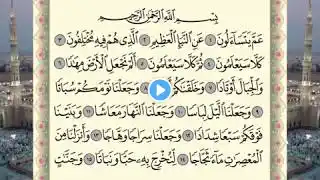 بِسْمِ اللَّهِ الرَّحْمَٰنِ الرَّحِيمِ
عَمَّ يَتَسَاءَلُونَ ١ عَنِ النَّبَإِ الْعَظِيمِ ٢ الَّذِي هُمْ فِيهِ مُخْتَلِفُونَ ٣
كَلَّا سَيَعْلَمُونَ ٤ ثُمَّ كَلَّا سَيَعْلَمُونَ ٥ أَلَمْ نَجْعَلِ الْأَرْضَ مِهَادًا ٦
وَالْجِبَالَ أَوْتَادًا ٧ وَخَلَقْنَاكُمْ وَجَعَلْنَا نَوْمَكُمْ سُبَاتًا
٩ وَجَعَلْنَا اللَّيْلَ لِبَاسًا ١٠ وَجَعَلْنَا النَّهَارَ مَعَاشًا ١١ وَبَنَيْنَا
فَوْقَكُمْ سَبْعًا شِدَادًا ١٢ وَجَعَلْنَا سِرَاجًا وَهَّاجًا ١٣ وَأَنزَلْنَا مِنَ
الْمُعْصِرَاتِ مَاءً ثَجَّاجًا ١٤ لِّنُخْرِجَ بِهِ حَبًّا وَنَبَاتًا ١٥ وَجَنَّاتٍ